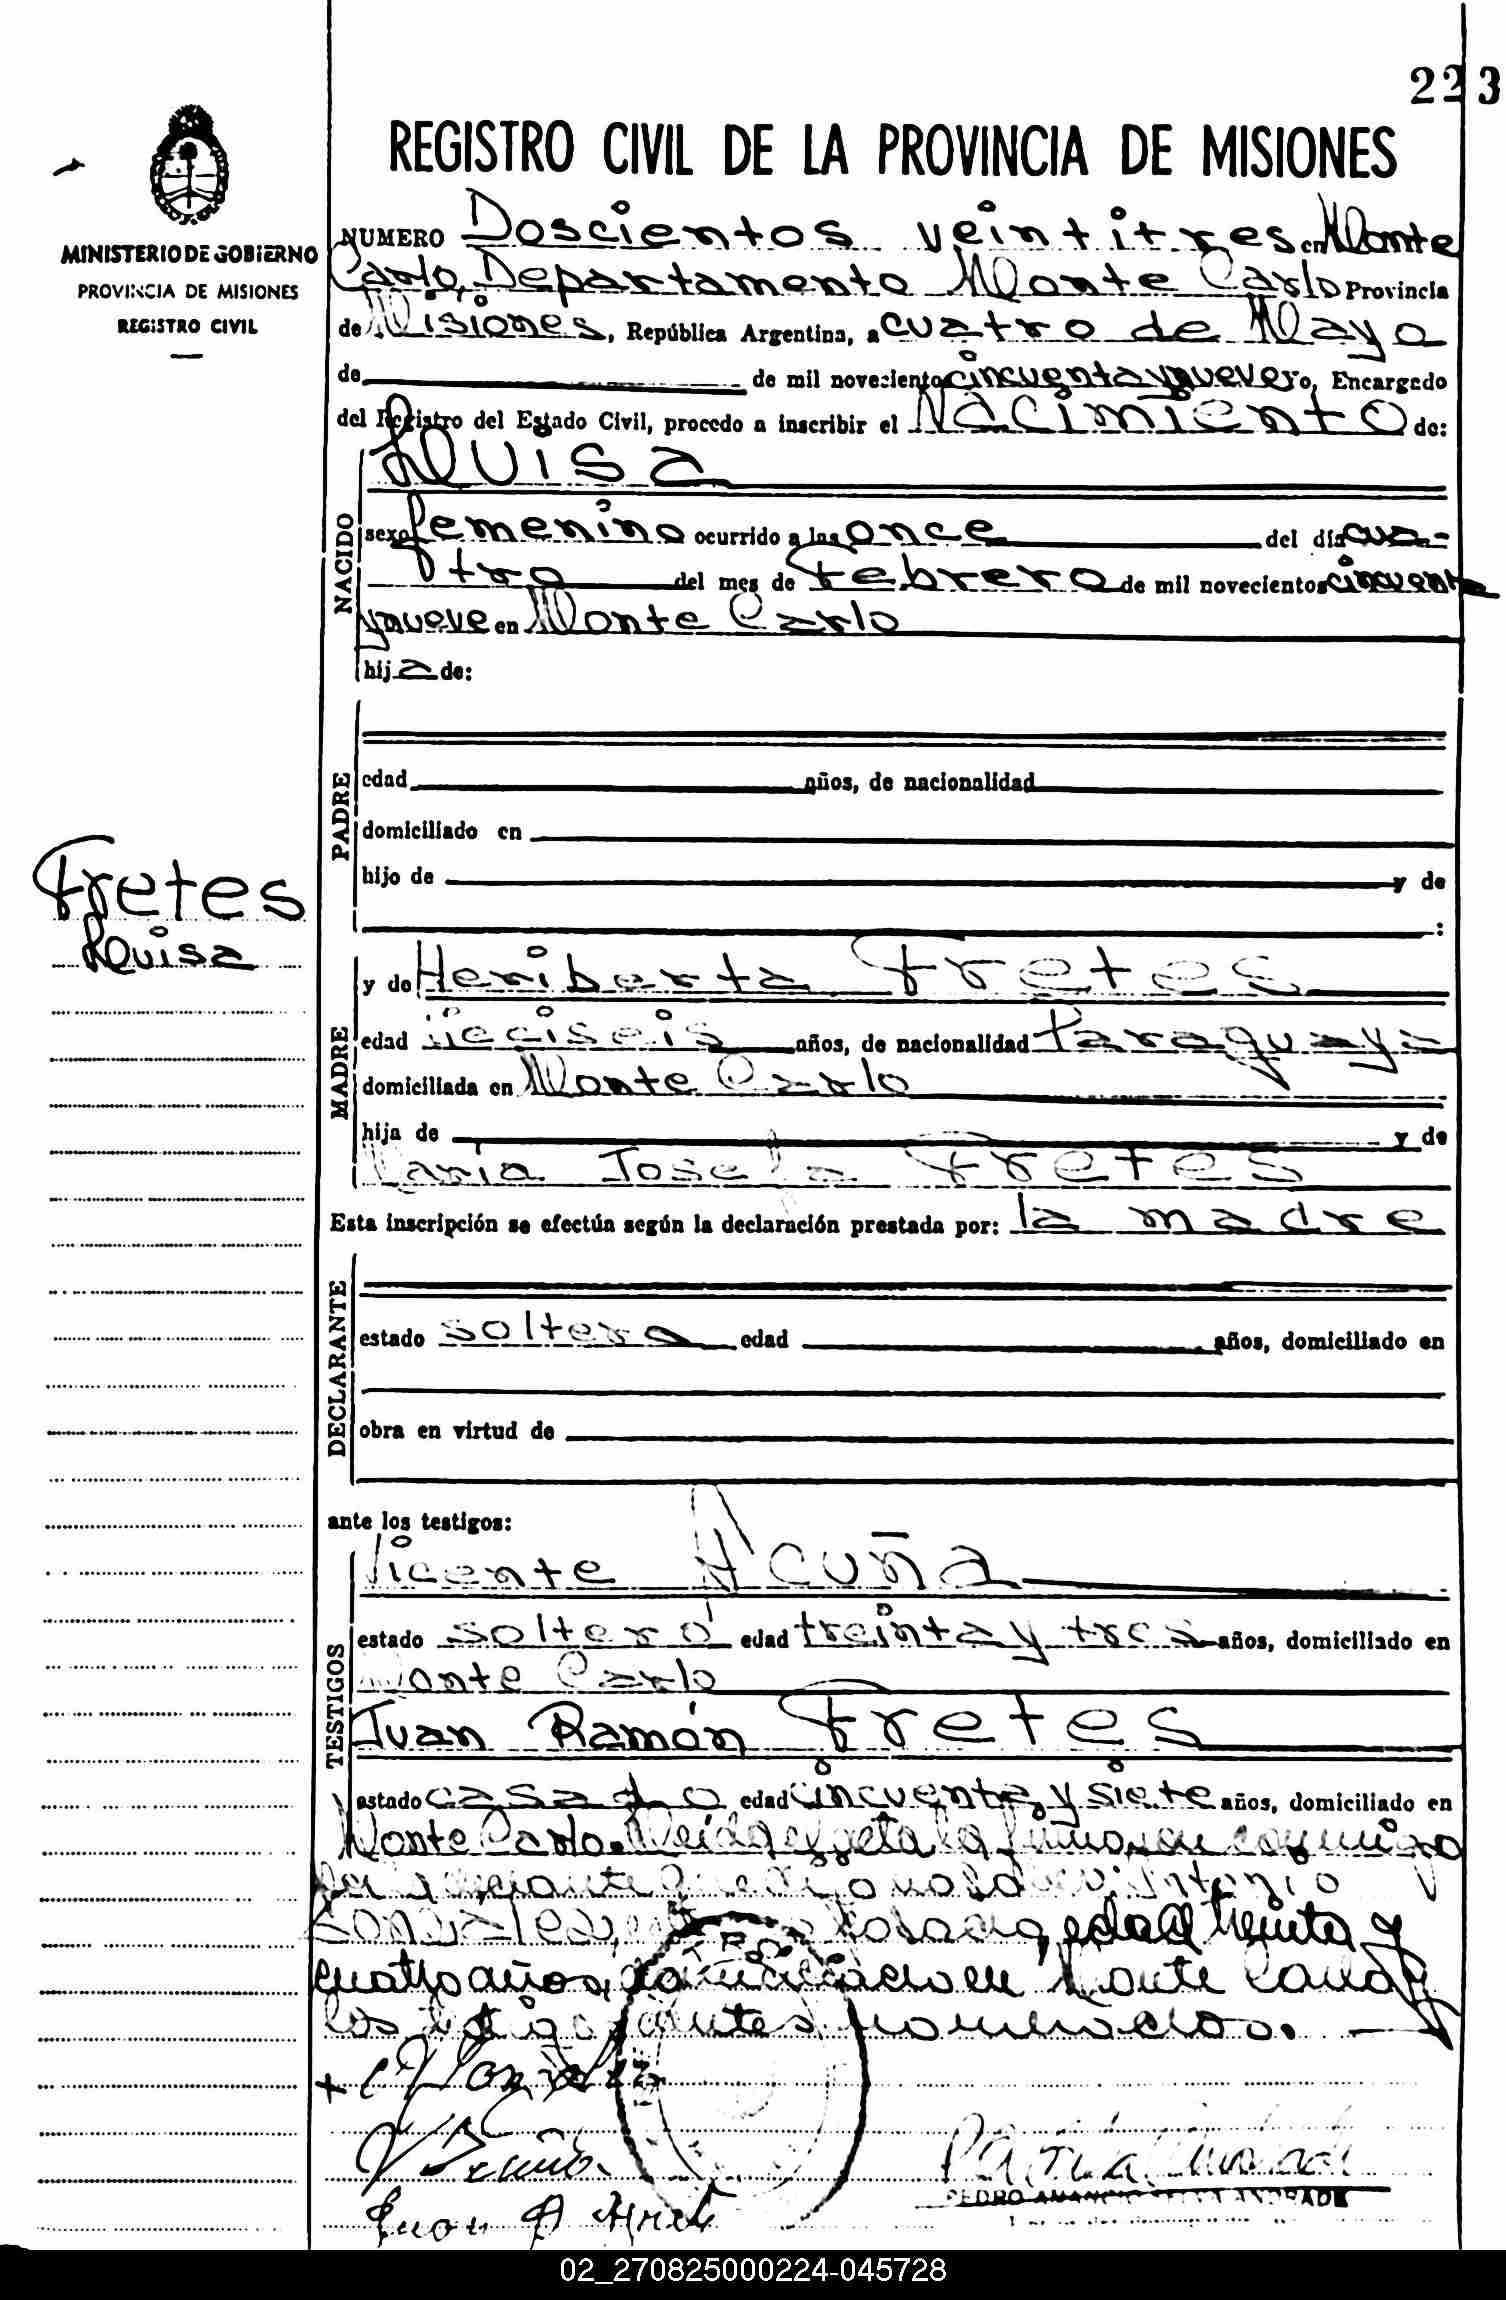 223
REGISTRO CIVIL DE LA PROVINCIA DE MISIONES
MINISTERIO DE GOBIERNO
PROVINCIA DE MISIONES
REGISTRO CIVIL
NUMERO Doscientos veintitres en Monte
Carlo, Departamento Monte Carlo Provincia
de Misiones, República Argentina, a cuatro de Mayo
de de mil novecientos cincuenta y nueve Yo, Encargado
del Registro del Estado Civil, procedo a inscribir el Nacimiento de:
Luisa
NACIDO
sexo femenino ocurrido a las once del día cua-
tro del mes de Febrero de mil novecientos cincuenta
y nueve en Monte Carlo
hija de:
PADRE
edad años, de nacionalidad
domiciliado en
hijo de y de
:
Fretes
Luisa
MADRE
y de Heriberta Fretes
edad dieciseis años, de nacionalidad Paraguaya
domiciliada en Monte Carlo
hija de y de
Maria Josefa Fretes
Esta inscripción se efectúa según la declaración prestada por: la madre
DECLARANTE
estado soltera edad años, domiciliado en
obra en virtud de
ante los testigos:
TESTIGOS
Vicente Acuña
estado soltero edad treinta y tres años, domiciliado en
Monte Carlo
Juan Ramón Fretes
estado casado edad cincuenta y siete años, domiciliado en
Monte Carlo. Leida el acta la firman conmigo
por la declarante que dijo no saber Antonio
Gonzales, edad treinta y
cuatro años, domiciliado en Monte Carlo y
los testigos antes nombrados.
PEDRO AMANCIO ANDRADE
02_270825000224-045728